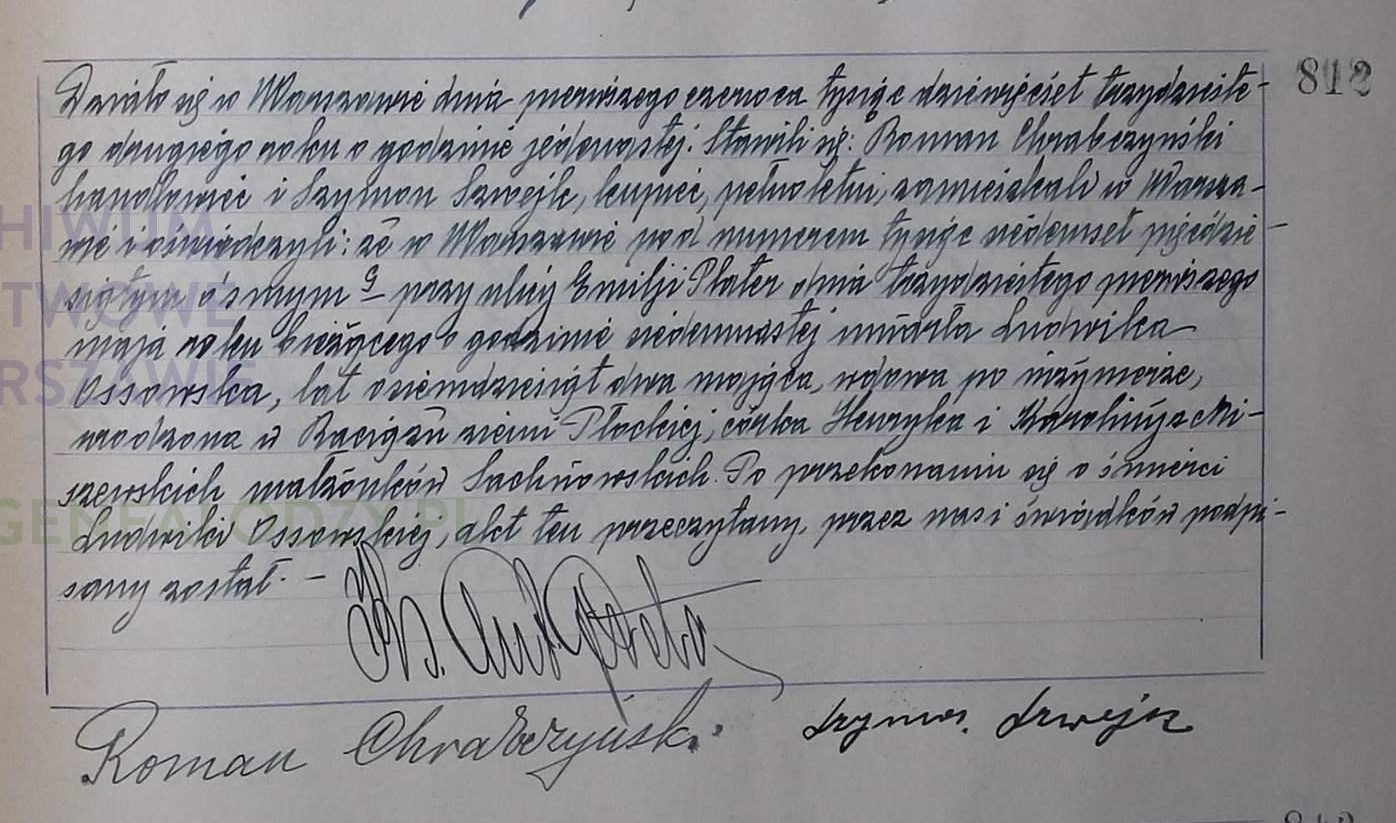 812
Działo się w Warszawie dnia pierwszego czerwca tysiąc dziewięćset trzydzieste-
go drugiego roku o godzinie jedenastej. Stawili się: Roman Chrabczyński
handlowiec i Szymon Szwejk, kupiec, pełnoletni, zamieszkali w Warsza-
wie i oświadczyli: że w Warszawie pod numerem tysiąc siedemset pięćdzie-
siątym ósmym g przy ulicy Emilji Plater dnia trzydziestego pierwszego
maja roku bieżącego o godzinie siedemnastej umarła Ludwika
Ossowska, lat osiemdziesiąt dwa mająca, wdowa po inżynierze,
urodzona w Raciążu ziemi Płockiej, córka Henryka i Karoliny z Mi-
szewskich małżonków Sachnowskich. Po przekonaniu się o śmierci
Ludwiki Ossowskiej, akt ten przeczytany, przez nas i świadków podpi-
sany został. —
Roman Chrabczyński. Szymon Szwejk
HIWUM
TWOWE
RSZAWIE
GENEALODZY.PL